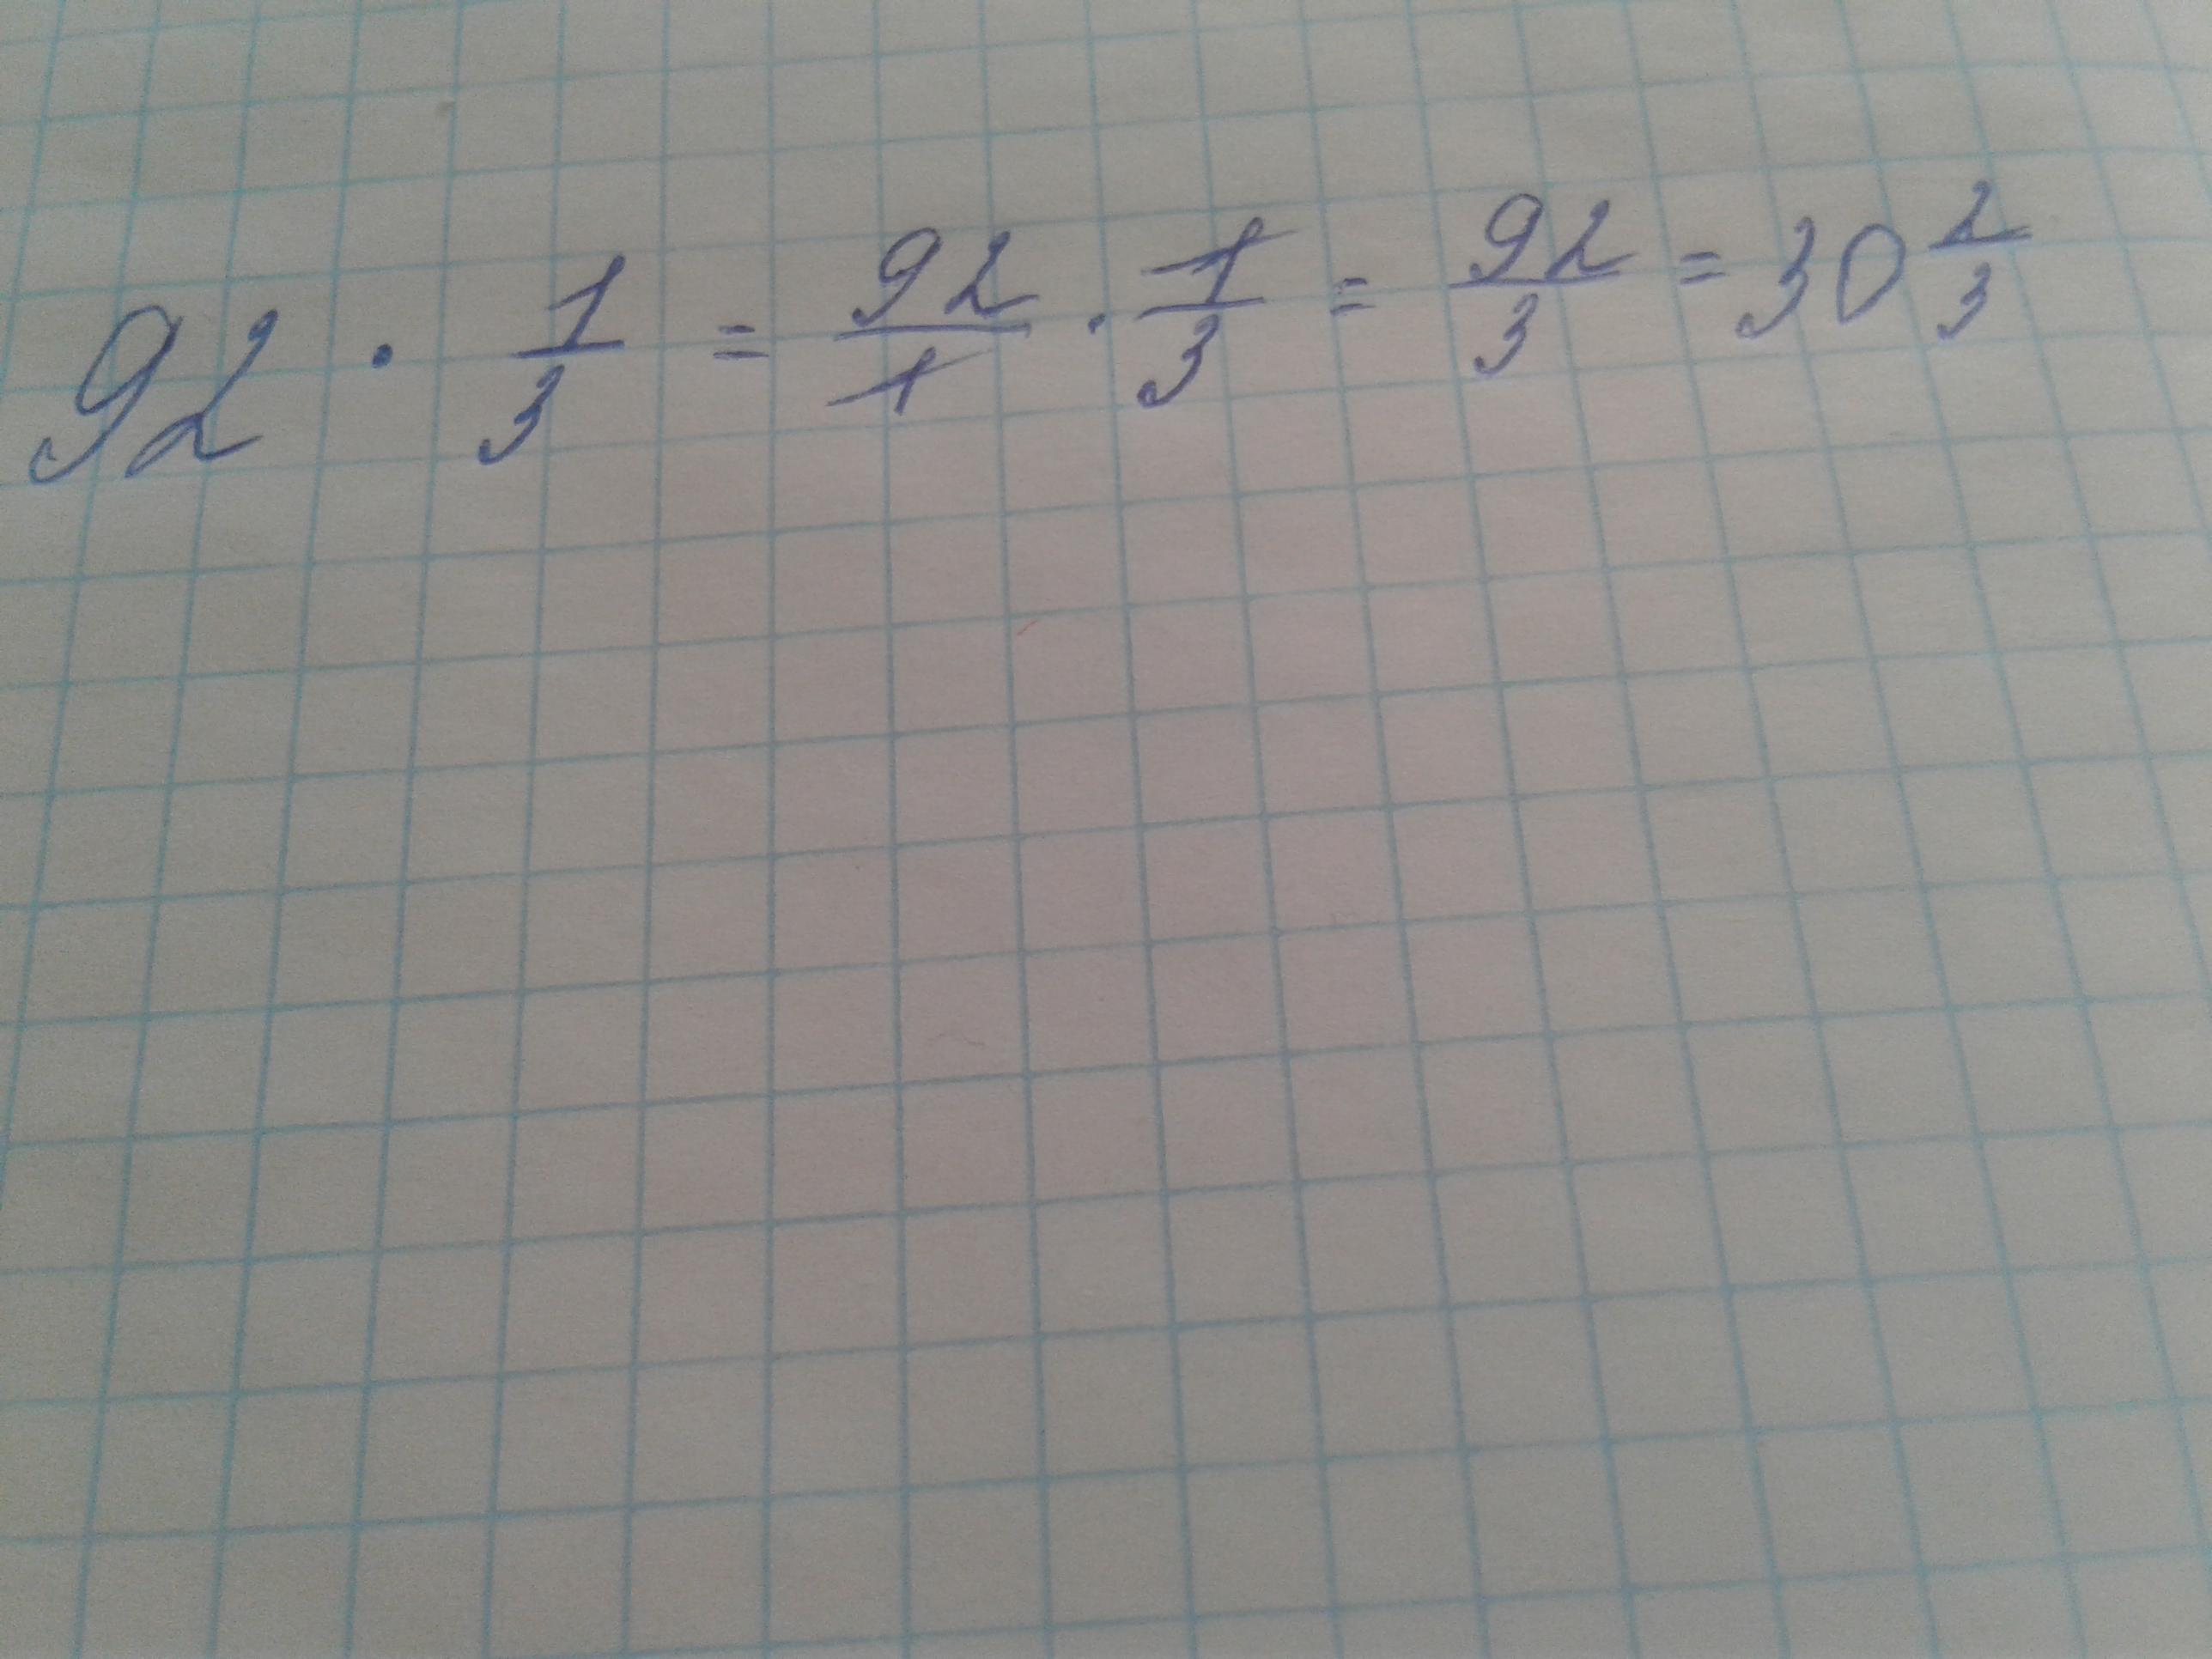 92 · 1/3 = 92/1 · 1/3 = 92/3 = 30 2/3